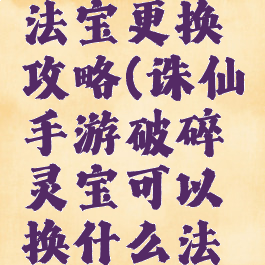 法宝更换
攻略(诛仙
手游破碎
灵宝可以
换什么法